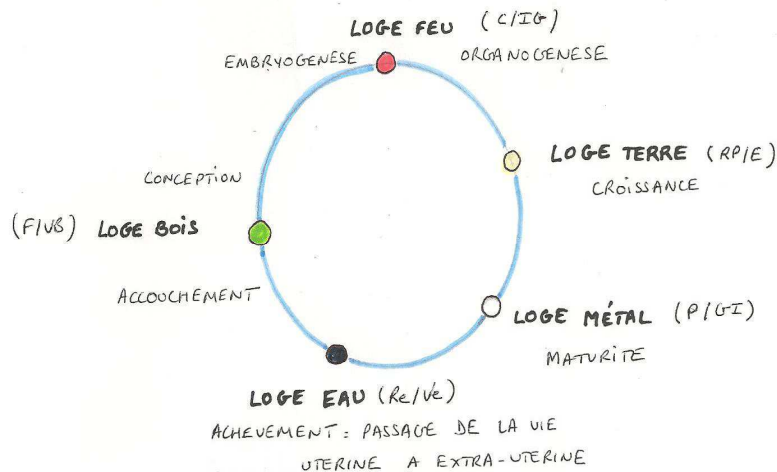 LOGE FEU (C/IG)
EMBRYOGENESE ORGANOGENESE
LOGE TERRE (RP/E)
CROISSANCE
CONCEPTION
(F/VB) LOGE BOIS
ACCOUCHEMENT
LOGE MÉTAL (P/GI)
MATURITE
LOGE EAU (Re/Ve)
ACHEVEMENT : PASSAGE DE LA VIE
UTERINE A EXTRA-UTERINE